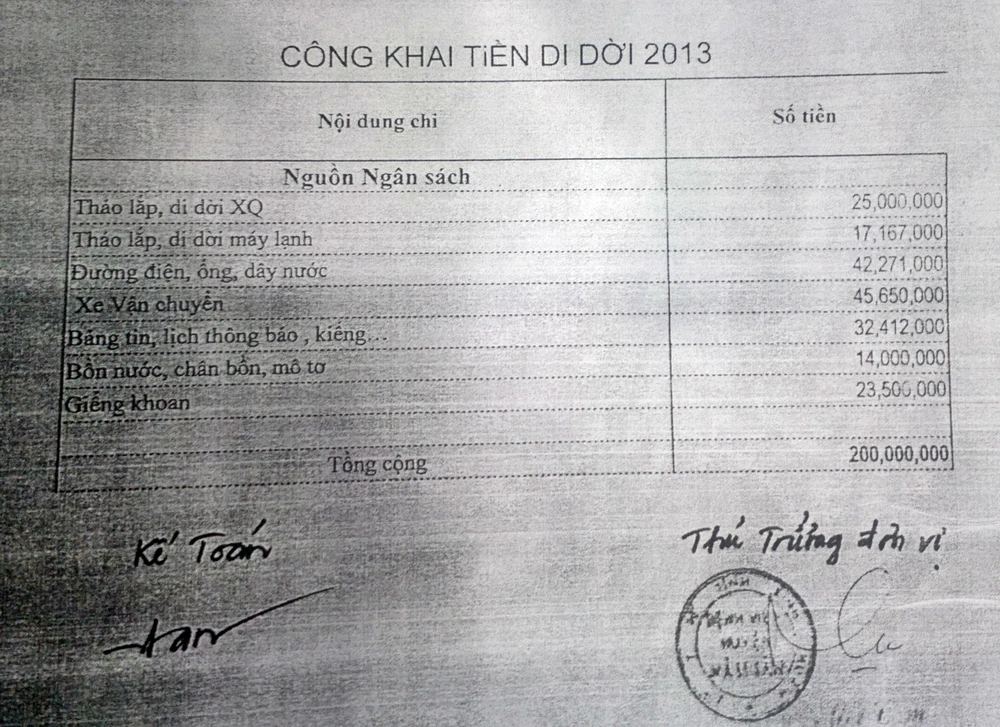 CÔNG KHAI TiỀN DI DỜI 2013
Nội dung chi Số tiền
Nguồn Ngân sách
Tháo lắp, di dời XQ 25,000,000
Tháo lắp, di dời máy lạnh 17,167,000
Đường điện, ống, dây nước 42,271,000
Xe Vân chuyển 45,650,000
Bảng tin, lich thông báo , kiếng... 32,412,000
Bồn nước, chân bồn, mô tơ 14,000,000
Giếng khoan 23,500,000
Tổng cộng 200,000,000
Kế Toán Thủ Trưởng đơn vị